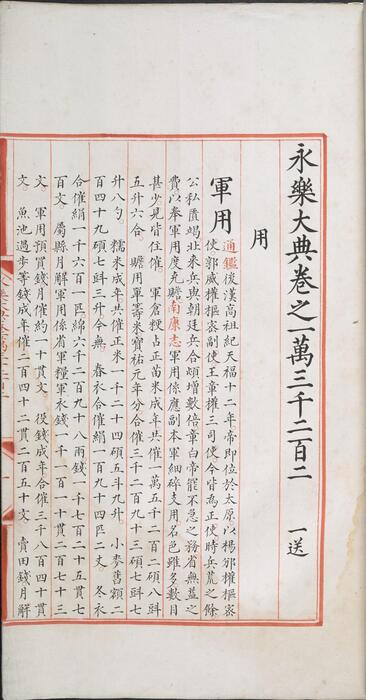 永樂大典卷之一萬三千二百二 一送
用
軍用 通鑑後漢高祖紀天福十二年帝即位於太原以楊邠權樞密
使郭威權樞密副使王章權三司使今皆為正使時兵荒之餘
公私匱竭北來兵與朝廷兵合頓增數倍章白帝罷不急之務省無益之
費以奉軍用度克贍南康志軍用係應副本軍細碎支用名色雖多數目
甚少見皆住催 軍倉粳占正苗米咸年共催一萬五千二百二碩八㪷
五升六合 贍用單籌米寶祐元年分合催三千二百九十三碩七㪷七
升八勺 糯米咸年共催正米一千二十四碩五斗九升 小麥舊額二
百四十九碩七㪷三升今無 春衣合催絹一百九十四匹二丈 冬衣
合催絹一千六百一匹綿六千二百九十八兩錢一千七百二十五貫七
百文 屬縣月解軍用係省軍糧軍衣錢一千一百一十貫二百七十三
文 軍用預買錢月催約一十貫文 役錢咸年合催三千八百四十貫
文 魚池過步等錢咸年催二百四十二貫二百五十文 賣田錢月解